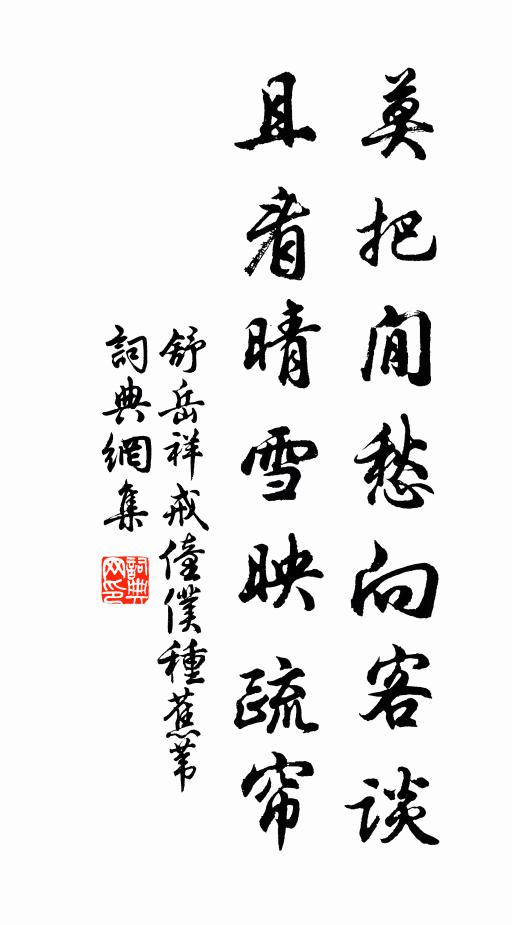 莫把閒愁向客談
且看晴雪映疏帘
舒岳祥戒僮僕種蕉苇
詞典網集
詞典网印